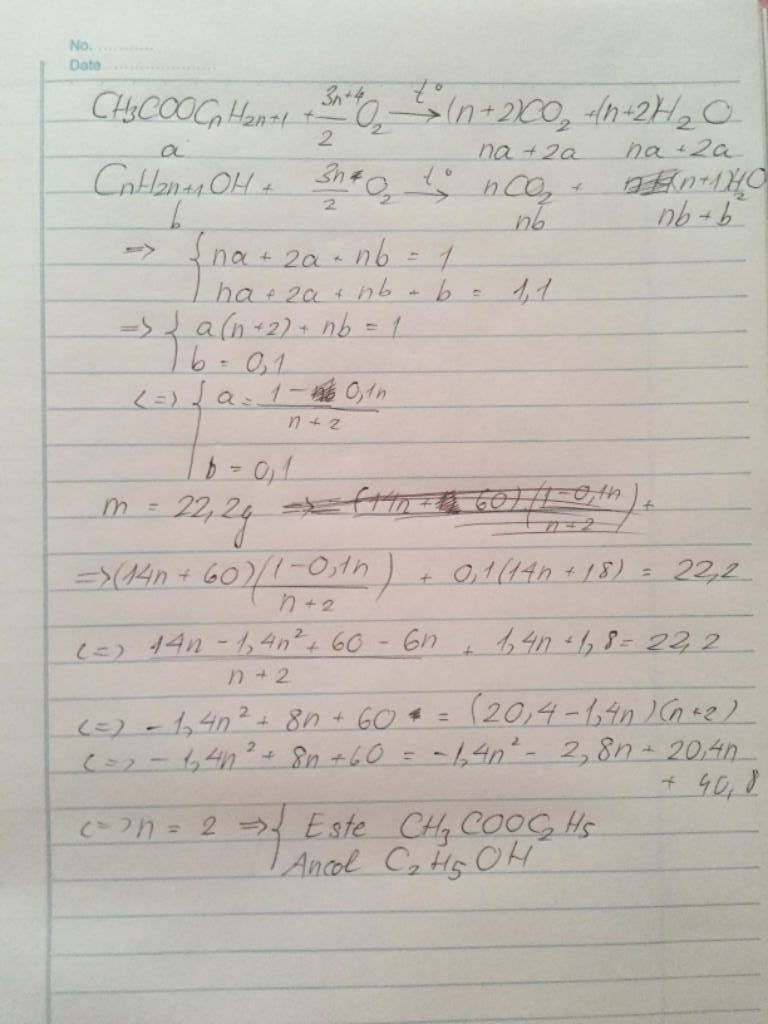 No. ............
Date .........................
CH3COOCnH2n+1 + 3n+4/2 O2 →t° (n+2)CO2 + (n+2)H2O
a na + 2a na + 2a
CnH2n+1OH + 3n/2 O2 →t° nCO2 + (n+1)H2O
b nb nb + b
=> { na + 2a + nb = 1
na + 2a + nb + b = 1,1
=> { a(n+2) + nb = 1
b = 0,1
<=> { a = 1 - 0,1n / n + 2
b = 0,1
m = 22,2g => (14n + 60)(1-0,1n / n+2) +
=> (14n + 60)(1-0,1n / n+2) + 0,1(14n + 18) = 22,2
<=> 14n - 1,4n² + 60 - 6n / n + 2 + 1,4n + 1,8 = 22,2
<=> - 1,4n² + 8n + 60 = (20,4 - 1,4n)(n+2)
<=> - 1,4n² + 8n + 60 = -1,4n² - 2,8n + 20,4n
+ 40,8
<=> n = 2 => { Este CH3COOC2H5
Ancol C2H5OH